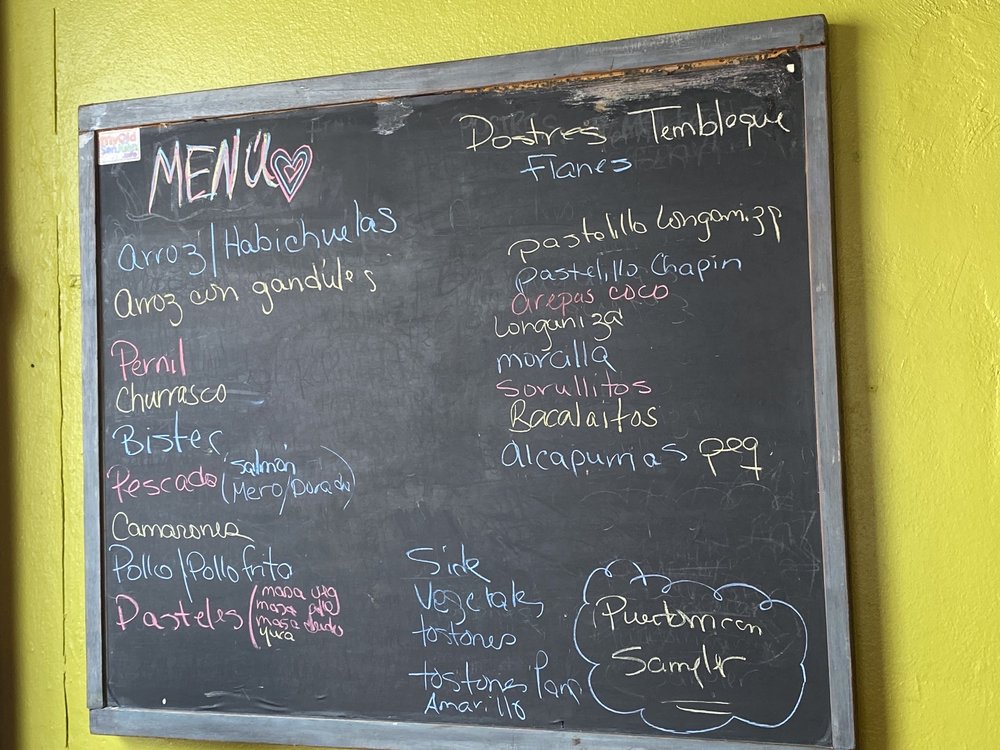 MENÚ
Arroz/Habichuelas
Arroz con gandules
Pernil
Churrasco
Bistec
Pescado (Salmón
Mero/Dorado)
Camarones
Pollo/Pollo frito
Pasteles (masa
masa pollo
masa
yuca
Dostres Tembloque
Flanes
pastolillo Longaniza
pastelillo Chapin
arepas coco
Longaniza
morcilla
Sorullitos
Bacalaitos
alcapurrias peq.
Side
Vegetales
tostones
tostones Pana
Amarillo
Puertorrican
Sampler